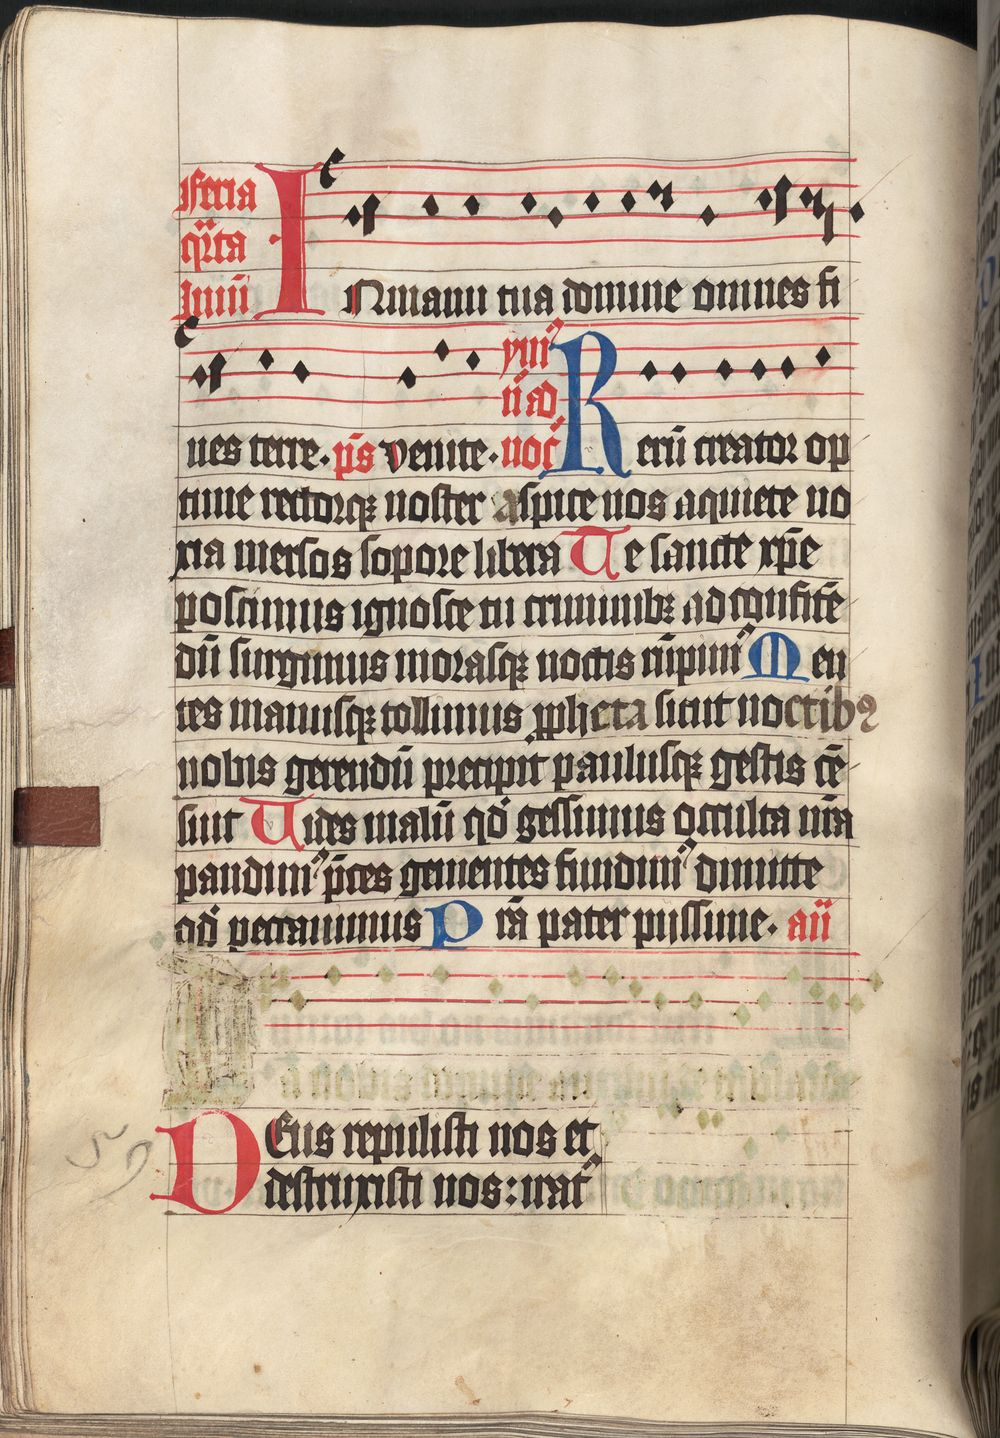 feria
qr̄ta
Inuit̄
INmanu tua domine omnes fi
nes terre· p̄s Venite· ymꝰ
ii ad
noc̄ Rerū creator op
time rectorqꝫ noster aspice nos aquiete no
xia mersos sopore libera Te sancte xp̄e
poscimus ignosce tu criminibꝫ ad confitē
dū surgimus morasqꝫ noctis rūpimꝰ Men
tes manusqꝫ tollimus ꝓpheta sicut noctibꝰ
nobis gerendū precipit paulusqꝫ gestis cē
suit Uides malū qd̄ gessimus occulta nr̄a
pandimꝰ p̄ces gementes fundimꝰ dimitte
qd̄ peccauimus Pr̄a pater pijssime· an̄
DEus repulisti nos et
destruxisti nos: irat̄ꝰ
59